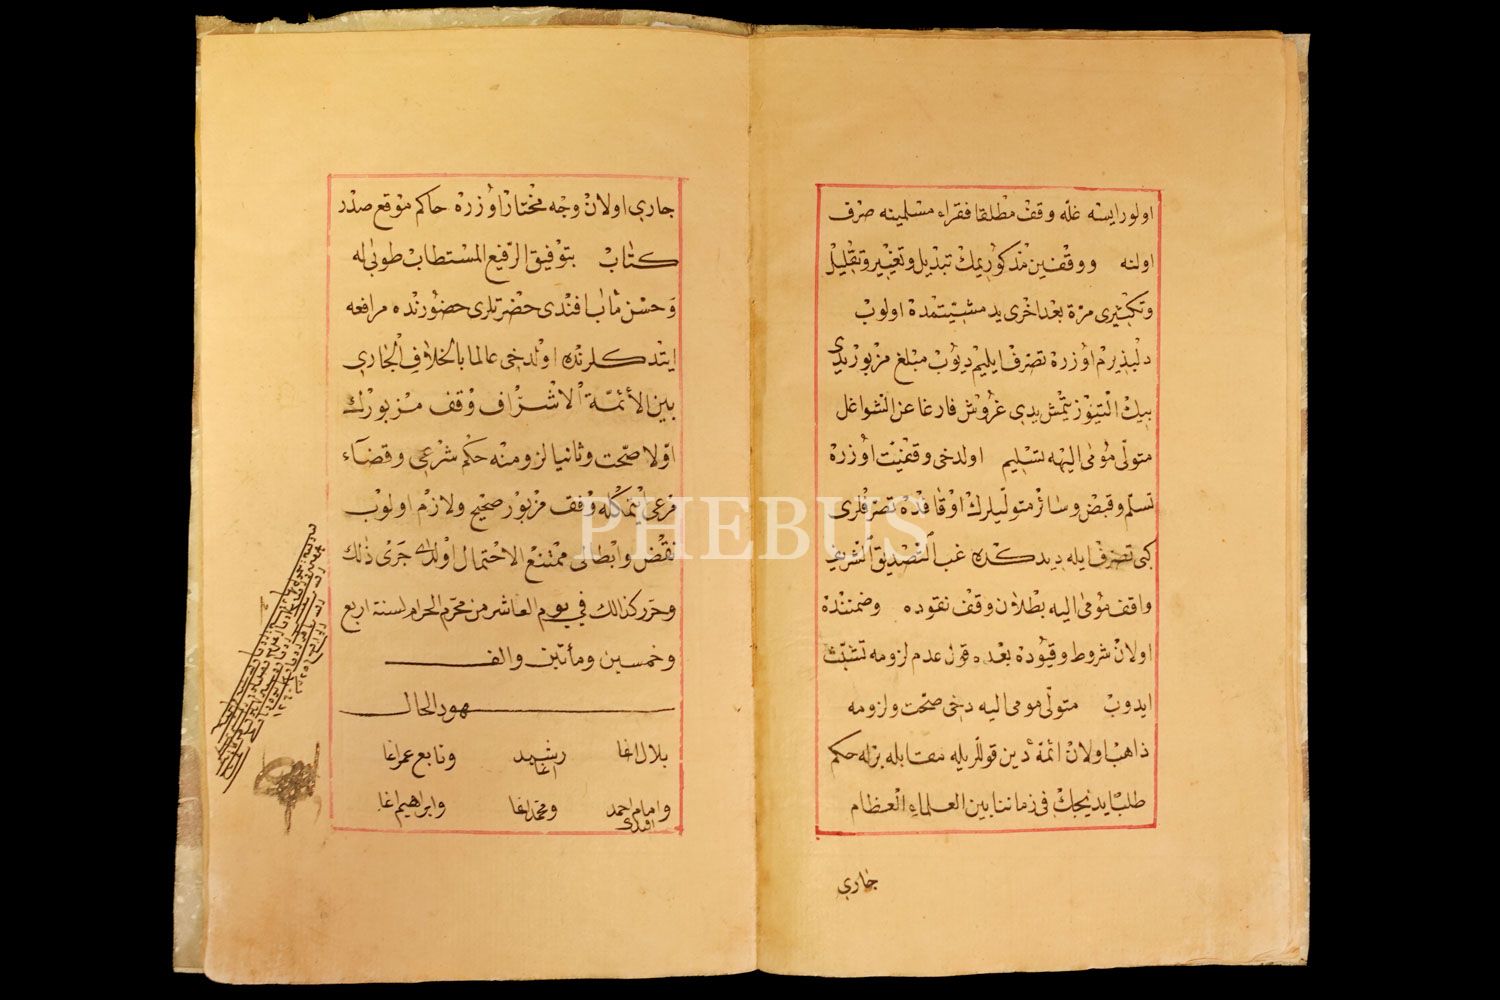 اولورايسه غله وقف مطلقا فقراء مسلمينه صرف
اولنه ووقفين مذكوريمك تبديل وتغيير وتقليل
وتكثيرى مرّة بعد اخرى يد مشيتمده اولوب
دلپذيرم اوزره تصرف ايليم ديوب مبلغ مزبور يدى
بيك التيوز يتمش يدى غروش فارغا عن الشواغل
متولّئ مومى اليهه تسليم اولدخى وقفيت اوزره
تسلم وقبض وسائر متوليلرك اوقافده تصرفلرى
كبى تصرف ايله ديدكده غب التصديق الشرعى
واقف مومى اليه بطلان وقف نقوده وضمننده
اولان شروط وقيوده بعده قول عدم لزومه تشبث
ايدوب متولّئ مومى اليه دخى صحت ولزومه
ذاهب اولان ائمۀ دين قوللريله مقابله برله حكم
طلب ايديجك فى زماننا بين العلماء العظام
جارى
جارى اولان وجه مختار اوزره حاكم موقع صدر
كتاب بتوفيق الرفيع المستطاب طوبى له
وحسن مآب افندى حضرتلرى حضورنده مرافعه
ايتدكلرنده اولدخى عالما بالخلاف الجارى
بين الأئمّة الاشراف وقف مزبورك
اوّلا صحّت وثانيا لزومنه حكم شرعى وقضاء
فرعى ايتمكله وقف مزبور صحيح ولازم اولوب
نقض وابطالى ممتنع الاحتمال اولدى جرى ذلك
وحرر كذالك في يوم العاشر من محرّم الحرام لسنة اربع
وخمسين ومأتين والف
شهود الحال
بلال اغا رشيد اغا وتابع عمر اغا
وامام احمد افندى ومحمد اغا وابراهيم اغا
PHEBUS